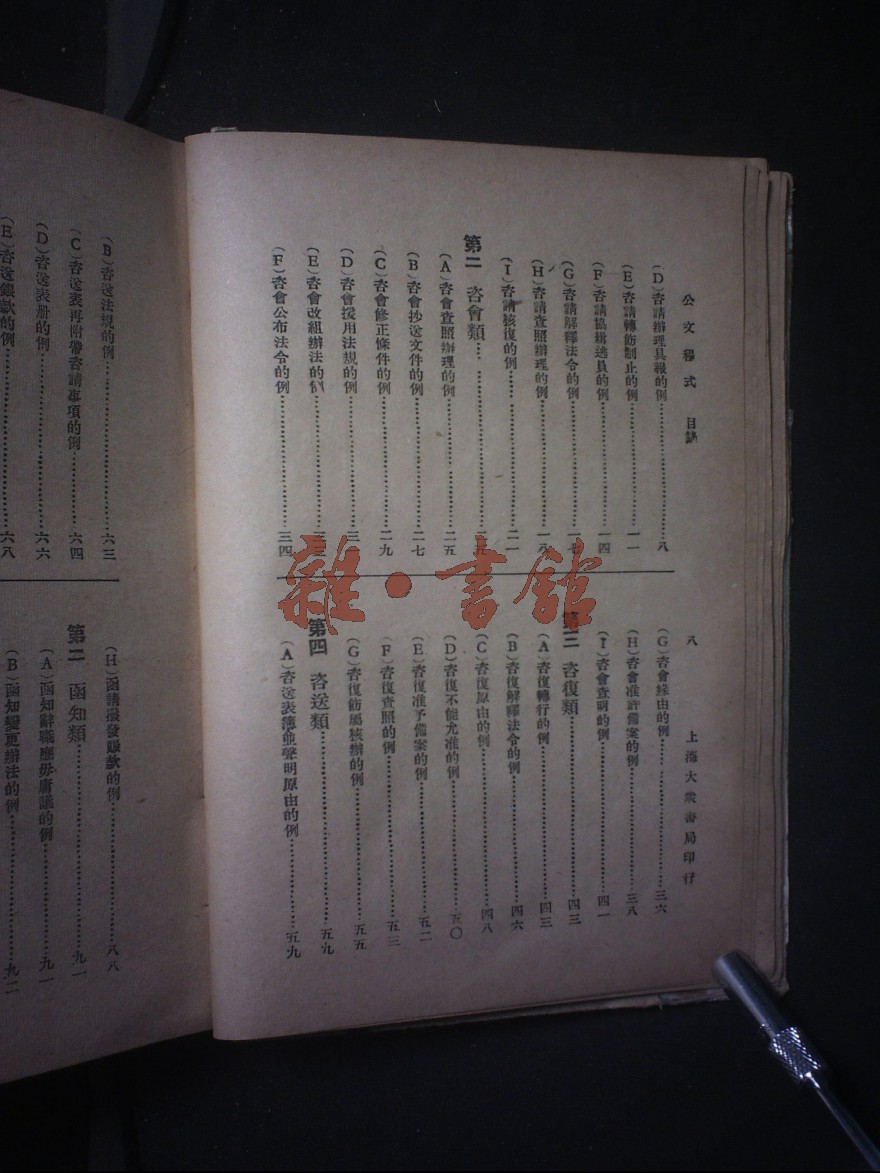 公文程式 目錄
八
上海大衆書局印行
(D)咨請辦理具報的例……八
(E)咨請轉飭制止的例……一一
(F)咨請協緝逃員的例……一四
(G)咨請解釋法令的例……一七
(H)咨請查照辦理的例……一八
(I)咨請核復的例……二一
第二 咨會類……二五
(A)咨會查照辦理的例……二五
(B)咨會抄送文件的例……二七
(C)咨會修正條件的例……二九
(D)咨會援用法規的例……三一
(E)咨會改組辦法的例……三三
(F)咨會公布法令的例……三四
(G)咨會緣由的例……三六
(H)咨會准許備案的例……三八
(I)咨會查明的例……四一
第三 咨復類……四三
(A)咨復轉行的例……四三
(B)咨復解釋法令的例……四六
(C)咨復原由的例……四八
(D)咨復不能允准的例……五〇
(E)咨復准予備案的例……五二
(F)咨復查照的例……五三
(G)咨復飭屬核辦的例……五五
第四 咨送類……五九
(A)咨送表簿並聲明原由的例……五九
(B)咨送法規的例……六三
(C)咨送表再附帶咨請事項的例……六四
(D)咨送表册的例……六六
(E)咨送銀欵的例……六八
(H)函請撥發賬欵的例……八八
第二 函知類……九一
(A)函知辭職應毋庸議的例……九一
(B)函知變更辦法的例……九二
雜·書館